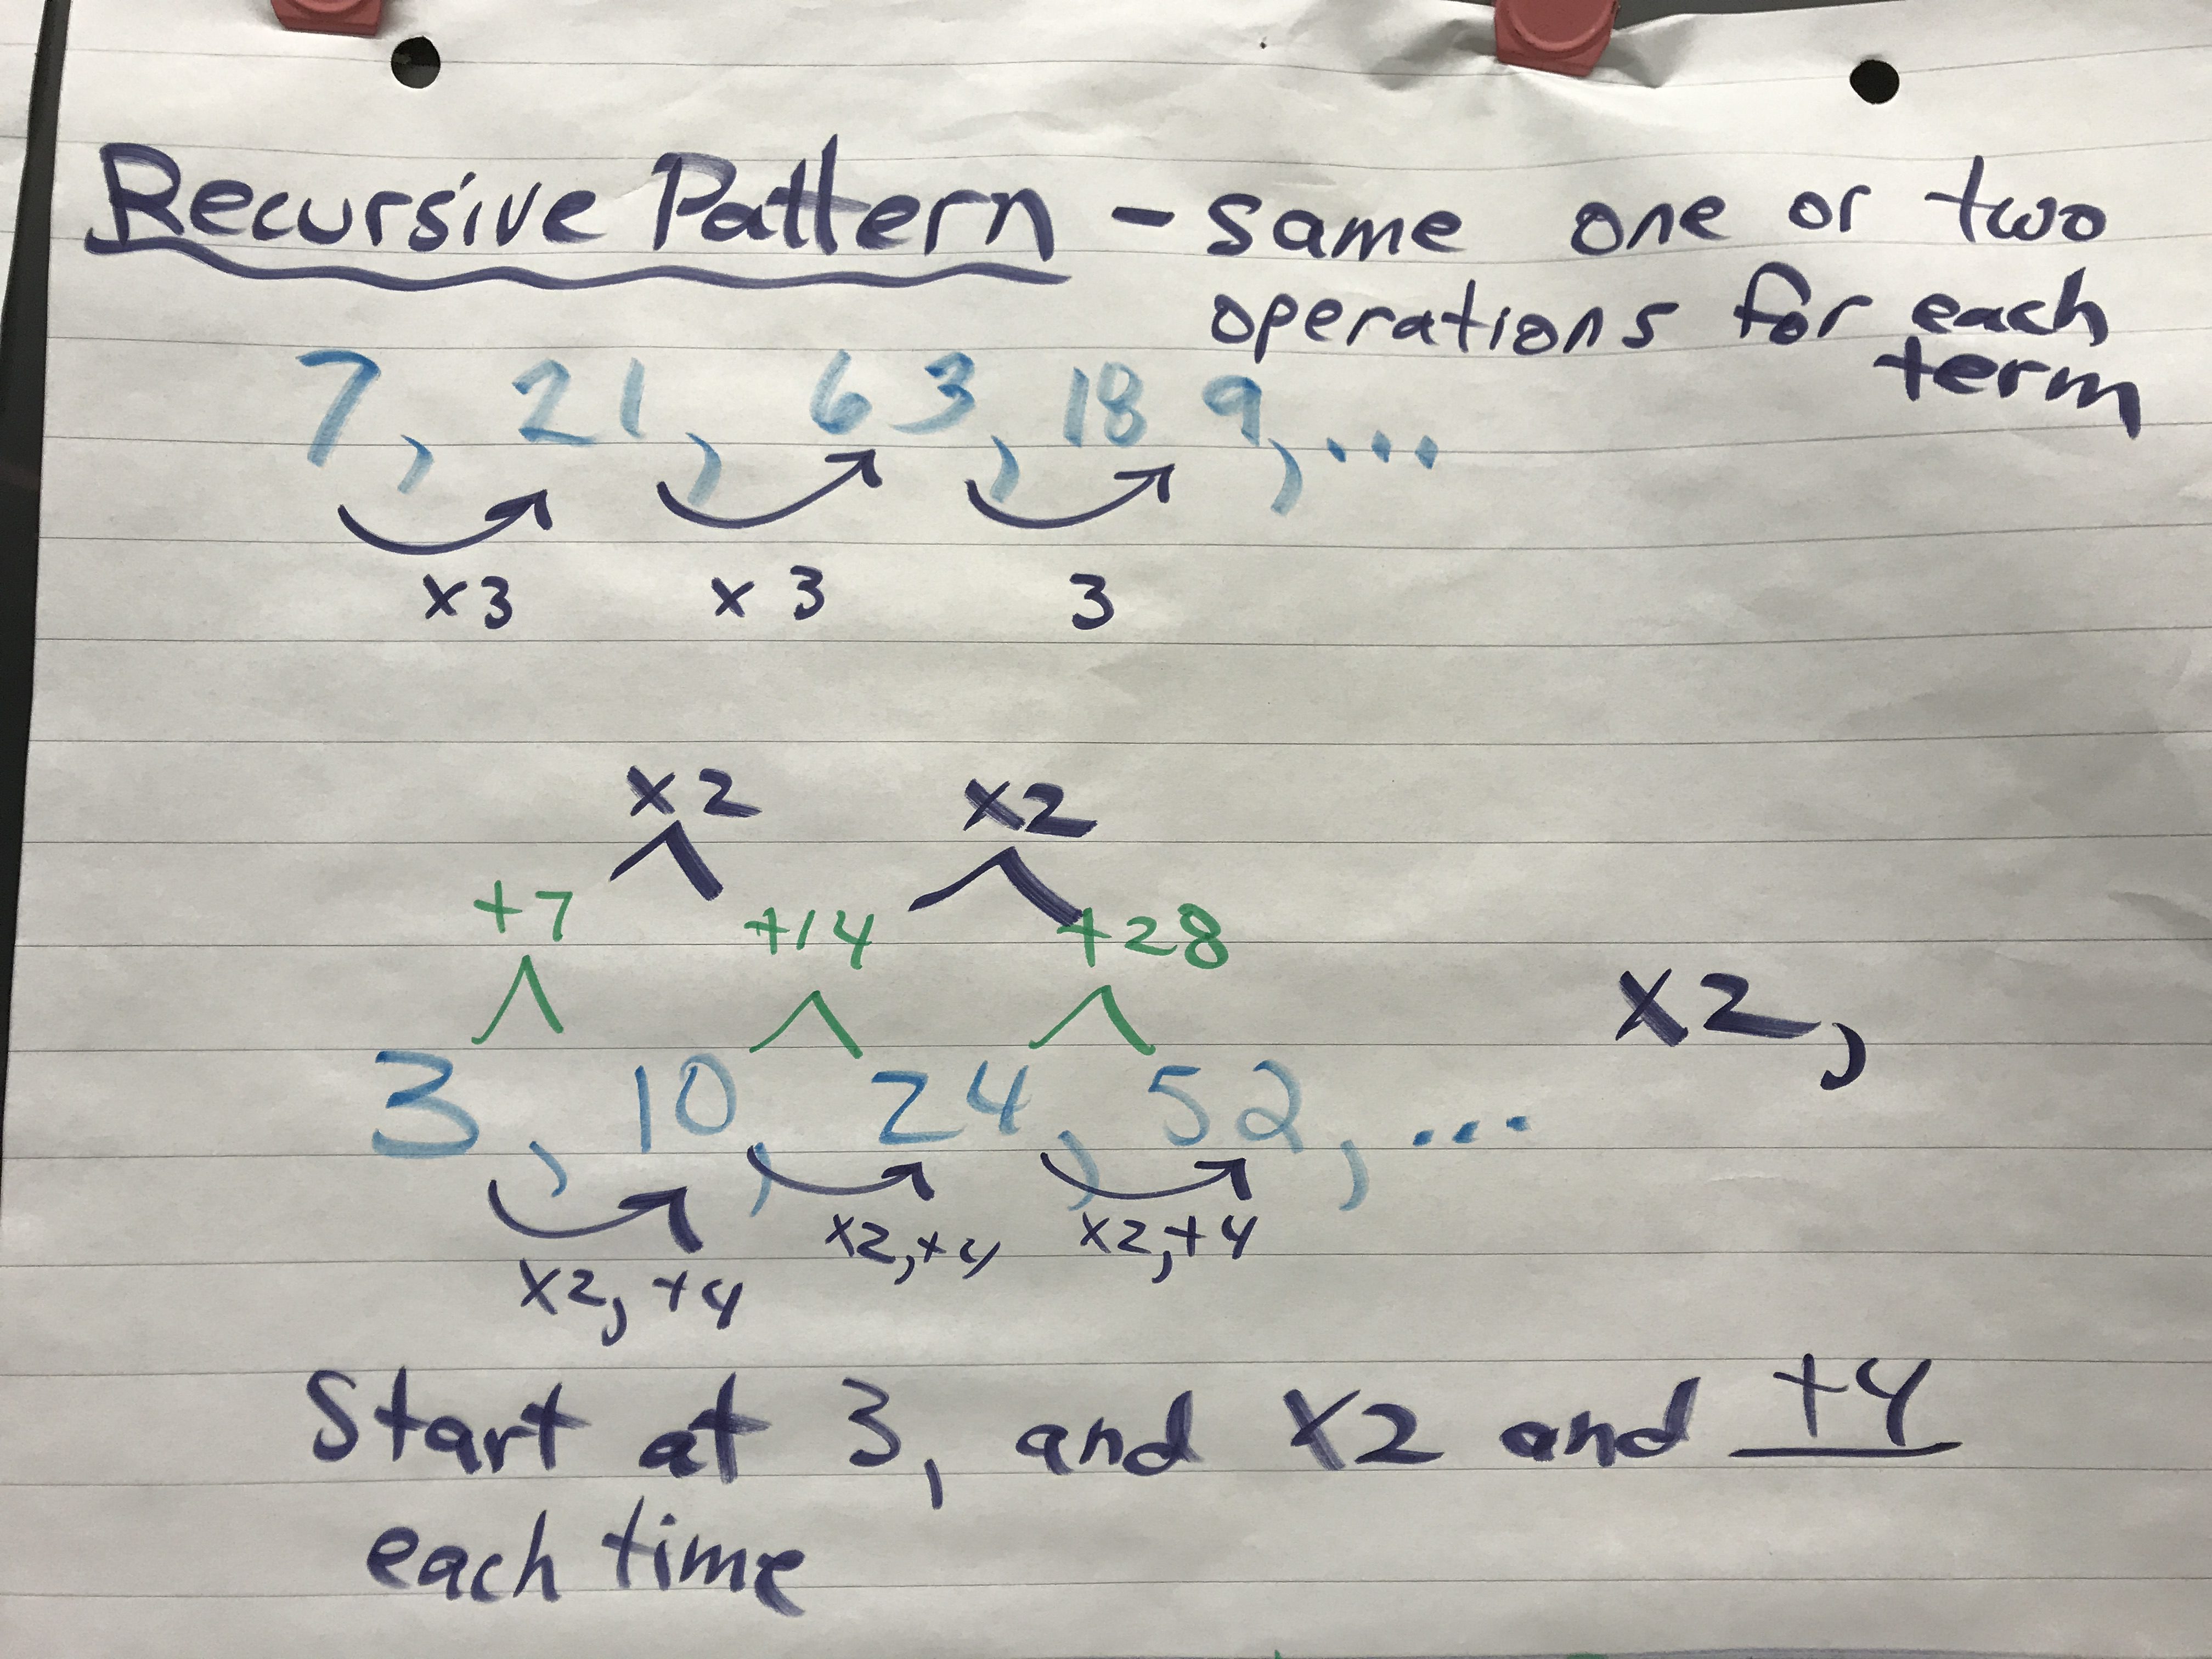 Recursive Pattern - same one or two
operations for each
term
7, 21, 63, 189, ...
x3 x3 3
x2 x2
+7 +14 +28
x2,
3, 10, 24, 52, ...
x2, +4 x2, +4 x2, +4
Start at 3, and x2 and +4
each time